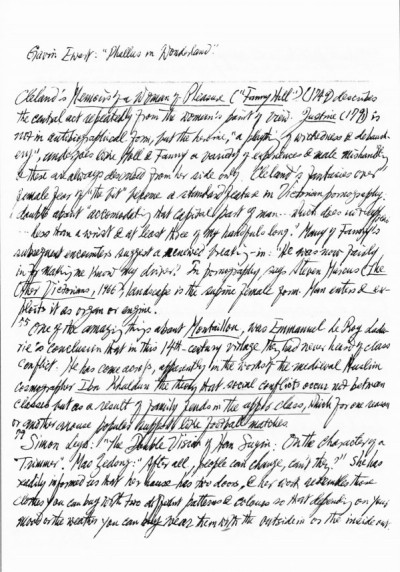 Gavin Ewart: "Phallus in Wonderland".
Cleland's Memoirs of a Woman of Pleasure ("Fanny Hill") (1749) describes
the central act repeatedly from the woman's point of view. Justine (1791) is
not in autobiographical form, but the heroine, "a
of wickedness &
undergoes like Hell & Fanny a variety of experiences & male
& these are always described from her side only. Cleland's fantasies over
female fear of "the bit" become a standard feature in Victorian pornography.
I doubt about accomodating that capital part of man ... which does
... less than a wrist & at least three of my handfuls long." Many of Fanny's
subsequent encounters suggest a mannered breaking-in: "He was now fairly
in
making me know my driver." In pornography, says Steven Marcus (The
Other Victorians, 1966), landscape is the supine female form. Man enters & ex-
ploits it as organ or engine.
One of the amazing things about Montaillou, was Emmanuel Le Roy Ladu-
rie's conclusion that in this 14th-century village they had never heard of class
conflict. He has come across, apparently in the works of the medieval Muslim
cosmographer Ibn Khaldun the theory that social conflicts occur not between
classes but as a result of family feuds in the upper class, which for one reason
or another arouse popular support like football matches.
Simon Leys: "The Double Vision of Han Suyin: On the character of a
Trimmer". Mao Zedong: "After all, people can change, can't they?" She has
readily informed us that her house has two doors, & her work resembles those
clothes you can buy with two different patterns & colours so that depending on your
mood or the weather you can wear them with the outside in or the inside out.